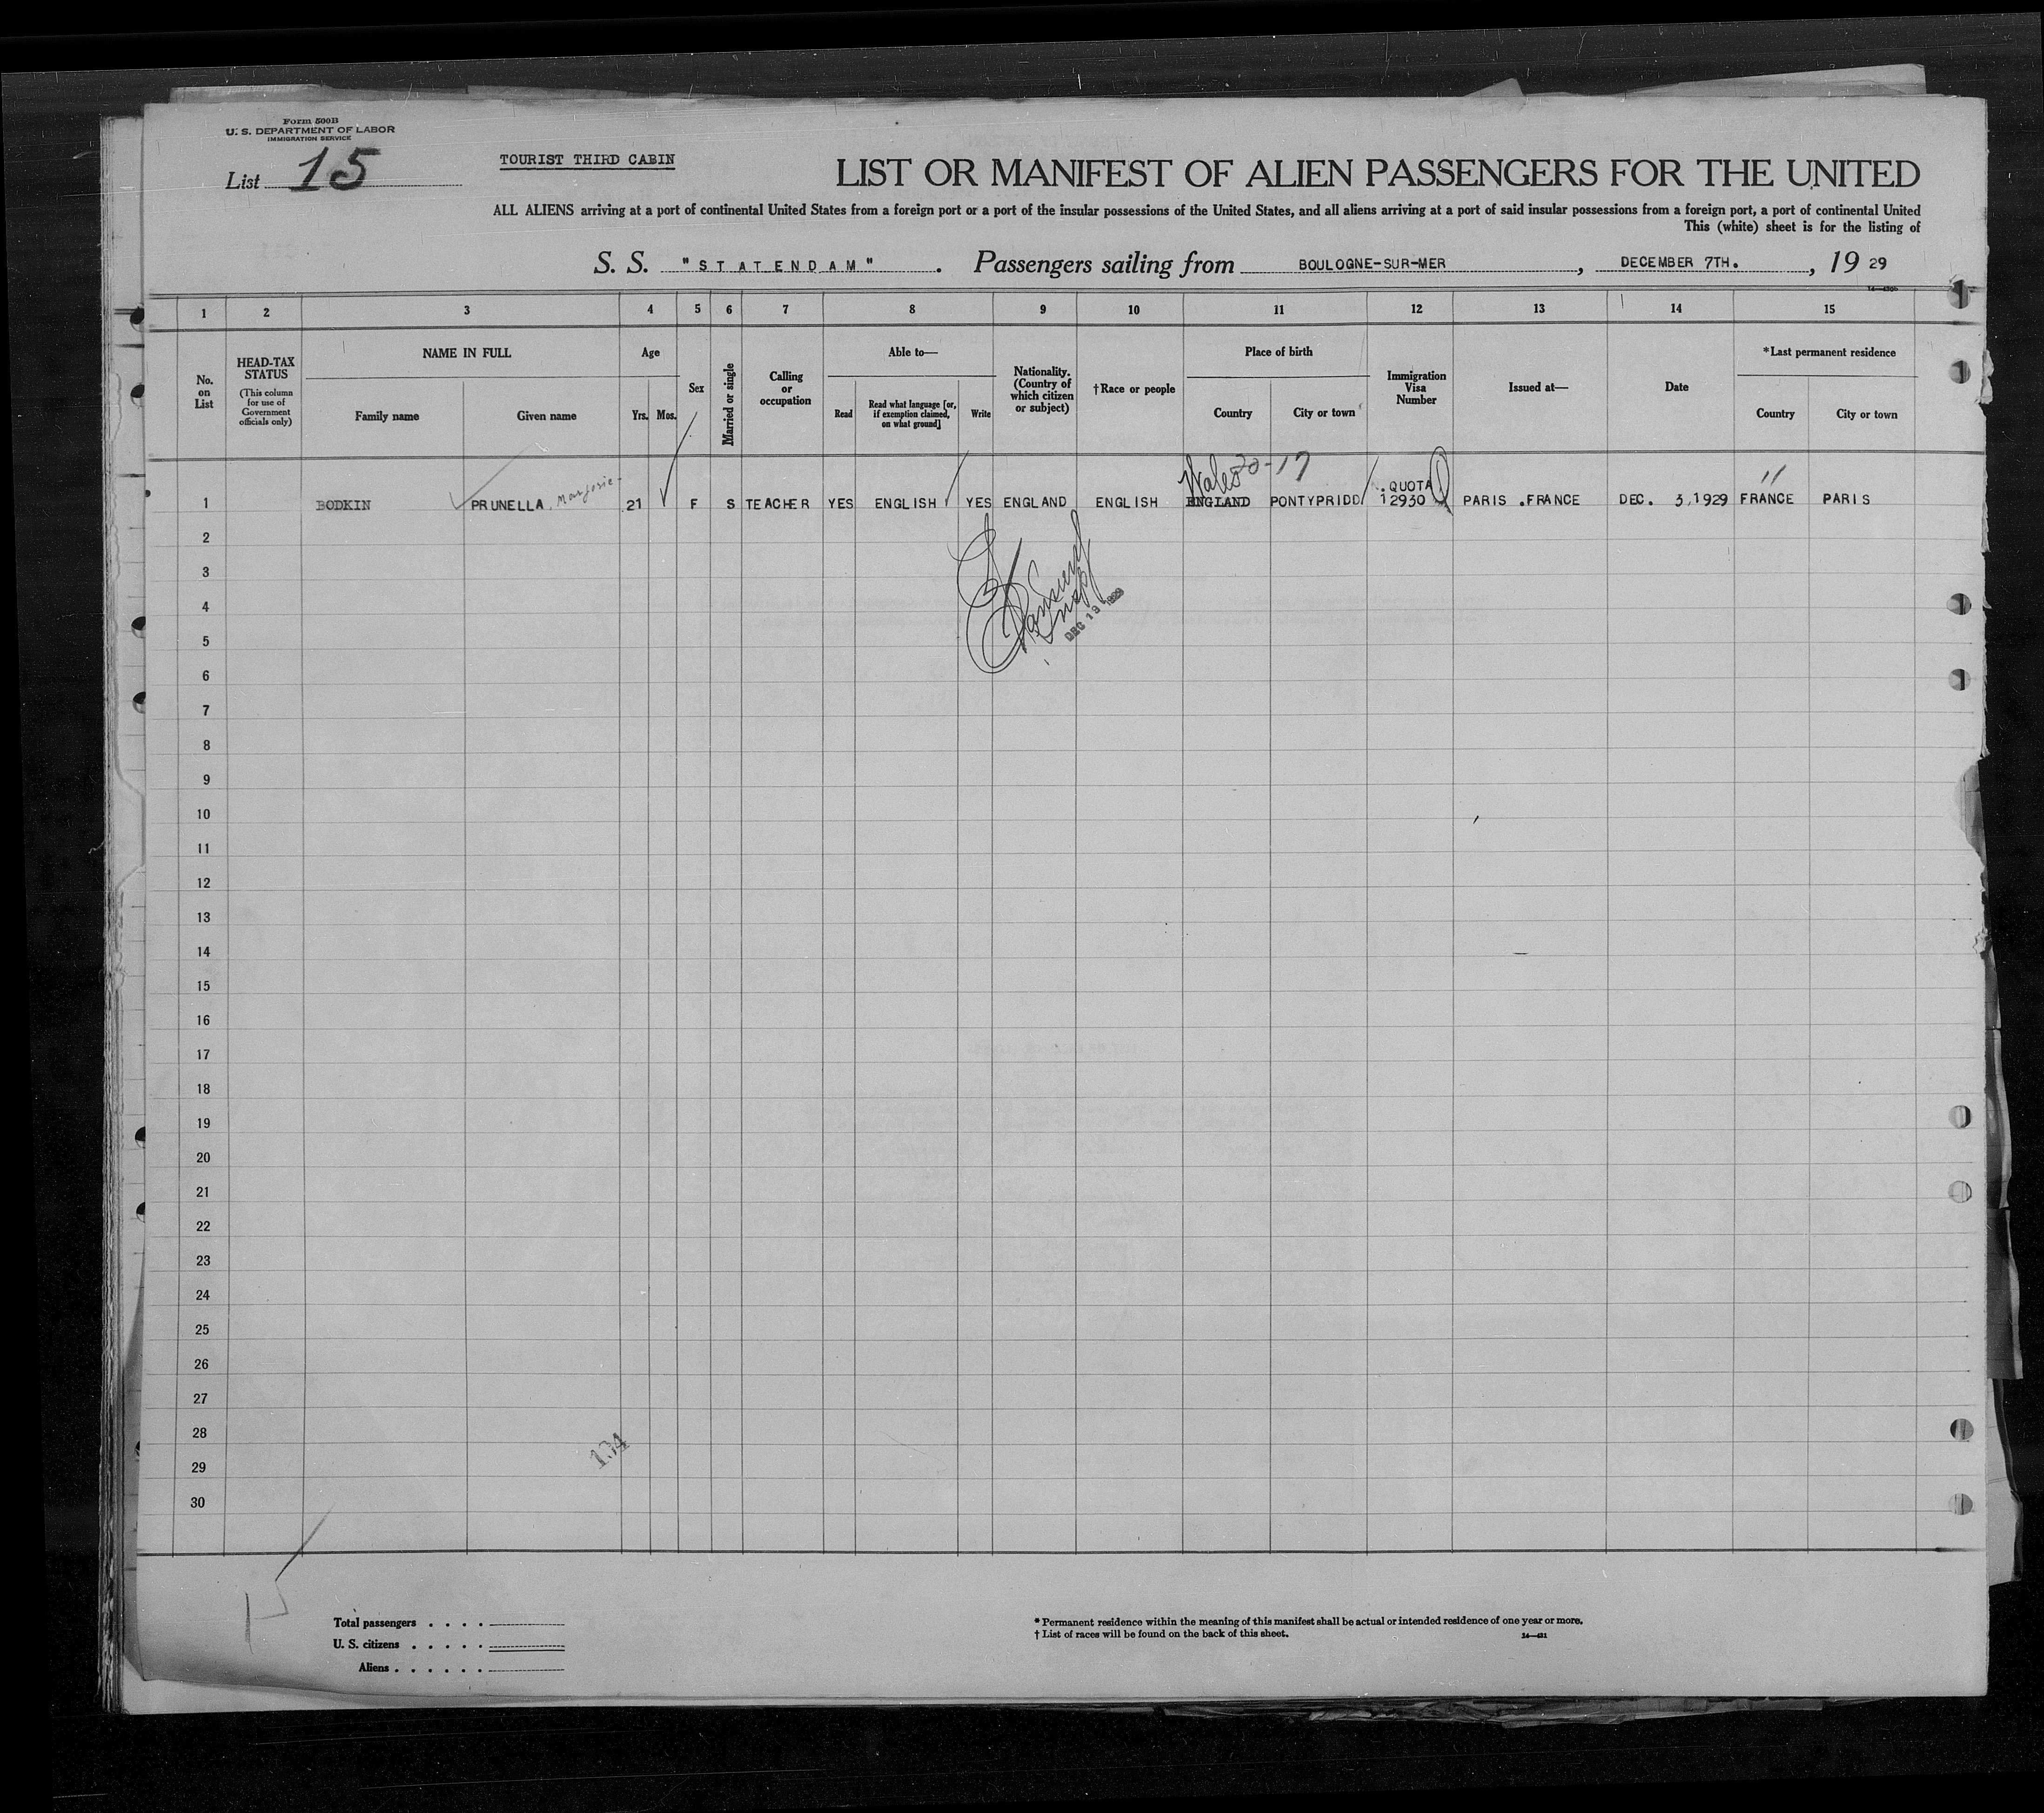 Form 500B
U. S. DEPARTMENT OF LABOR
IMMIGRATION SERVICE
List 15
TOURIST THIRD CABIN
LIST OR MANIFEST OF ALIEN PASSENGERS FOR THE UNITED
ALL ALIENS arriving at a port of continental United States from a foreign port or a port of the insular possessions of the United States, and all aliens arriving at a port of said insular possessions from a foreign port, a port of continental United
This (white) sheet is for the listing of
S. S. "STATENDAM" . Passengers sailing from BOULOGNE-SUR-MER , DECEMBER 7TH. , 19 29
1 2 3 4 5 6 7 8 9 10 11 12 13 14 15
No. on List
HEAD-TAX STATUS
(This column for use of Government officials only)
NAME IN FULL
Family name
Given name
Age
Yrs.
Mos.
Sex
Married or single
Calling or occupation
Able to—
Read
Read what language [or, if exemption claimed, on what ground]
Write
Nationality. (Country of which citizen or subject)
†Race or people
Place of birth
Country
City or town
Immigration Visa Number
Issued at—
Date
*Last permanent residence
Country
City or town
Wales 20-17
QUOTA
1 BODKIN PRUNELLA Marjorie- 21 F S TEACHER YES ENGLISH YES ENGLAND ENGLISH ENGLAND PONTYPRIDD 12930 PARIS .FRANCE DEC. 3,1929 FRANCE PARIS
2
3
4
DEC 13 1929
5
6
7
8
9
10
11
12
13
14
15
16
17
18
19
20
21
22
23
24
25
26
27
28
134
29
30
15
Total passengers . . . .
U. S. citizens . . . . .
Aliens . . . . . .
* Permanent residence within the meaning of this manifest shall be actual or intended residence of one year or more.
† List of races will be found on the back of this sheet.
14—431